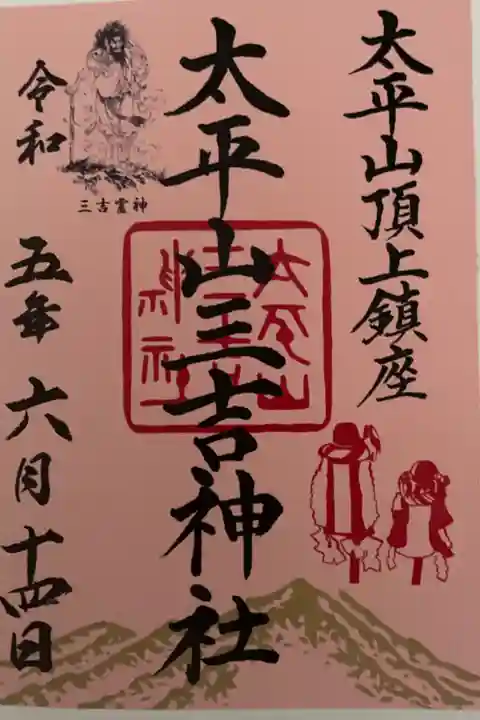 太平山頂上鎮座
太平山三吉神社
太平山
三吉
神社
三吉霊神
令和五年六月十四日